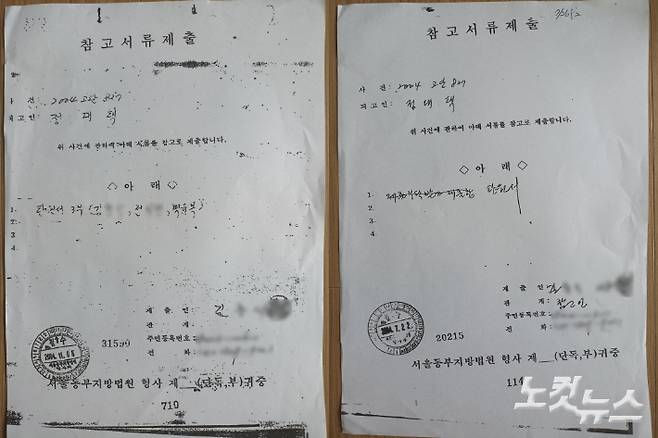 참고서류제출
사 건 : 2004 고단
피고인 : 정 대 택
위 사건에 관하여 아래 서류를 참고로 제출합니다.
◇ 아 래 ◇
1. 탄원서 3부
2.
3.
4
제 출 인 : 김
관 계 :
31599 주민등록번호 :
전 화 :
서울동부지방법원 형사 제 __(단독,부)귀중
710
참고서류제출
사 건 : 2004 고단
피고인 : 정 대 택
위 사건에 관하여 아래 서류를 참고로 제출합니다.
◇ 아 래 ◇
1. 탄원서
2.
3.
4
제 출 인 : 김
관 계 : 참고인
20215 주민등록번호 :
전 화 :
서울동부지방법원 형사 제 __(단독,부)귀중
114
노컷뉴스